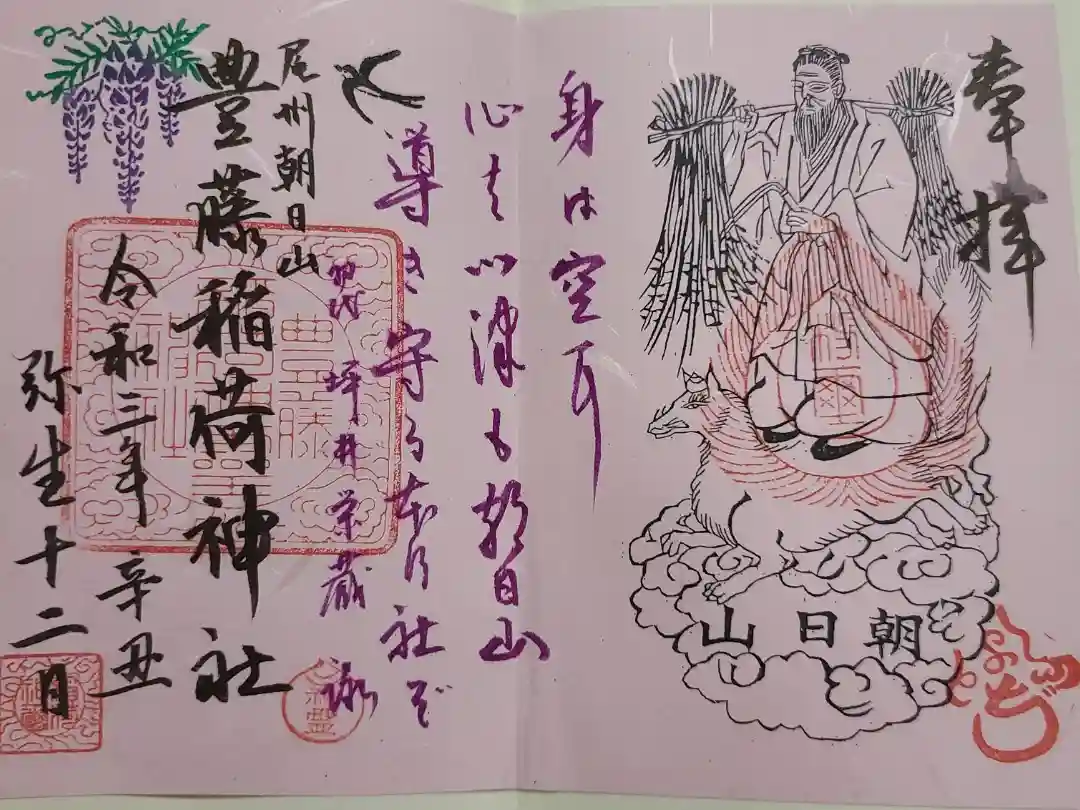 奉拝
朝日山
身は空
心 以津も朝日山
導き守る 社ぞ
坪井栄蔵 詠
尾州朝日山
豊藤稲荷神社
令和三年 辛丑
弥生十二日